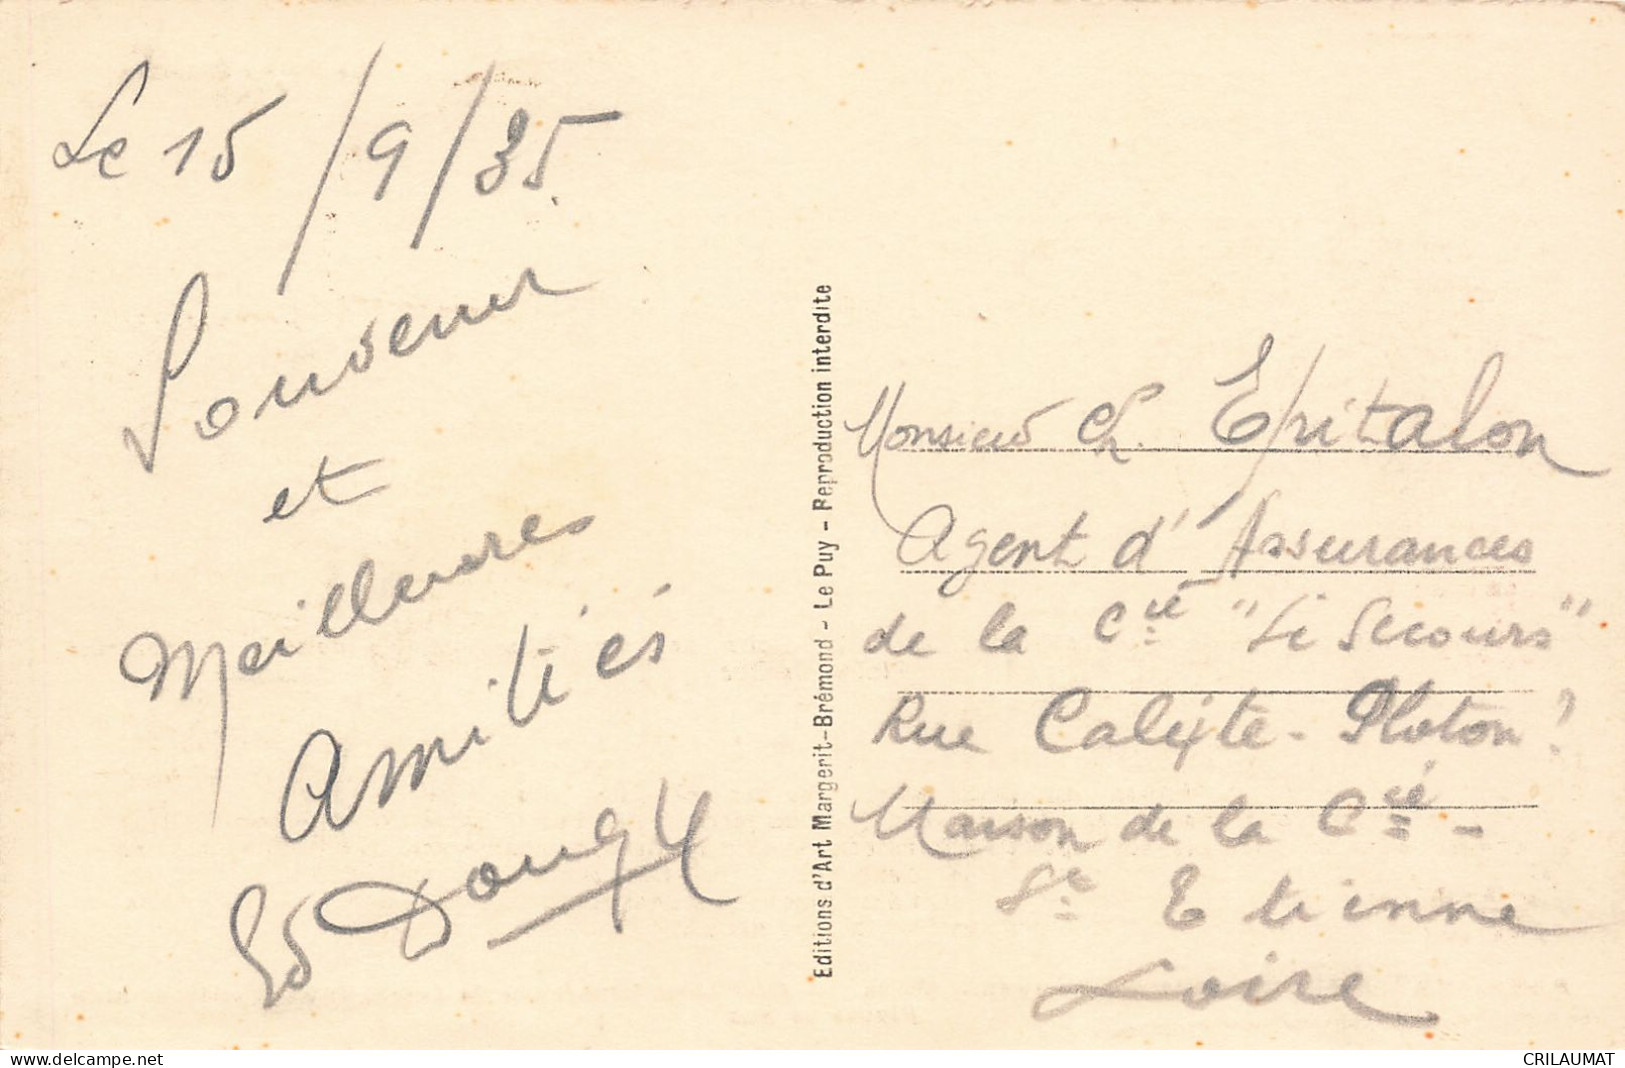 Le 15/9/35
Souvenir
et
Meilleures
Amitiés
Editions d'Art Margerit-Brémond - Le Puy - Reproduction interdite
Monsieur Ch. Epitalon
Agent d'Assurances
de la Cie "Le Secours"
Rue Calixte-Ploton
Maison de la Cie -
St Etienne
Loire
www.delcampe.net
CRILAUMAT